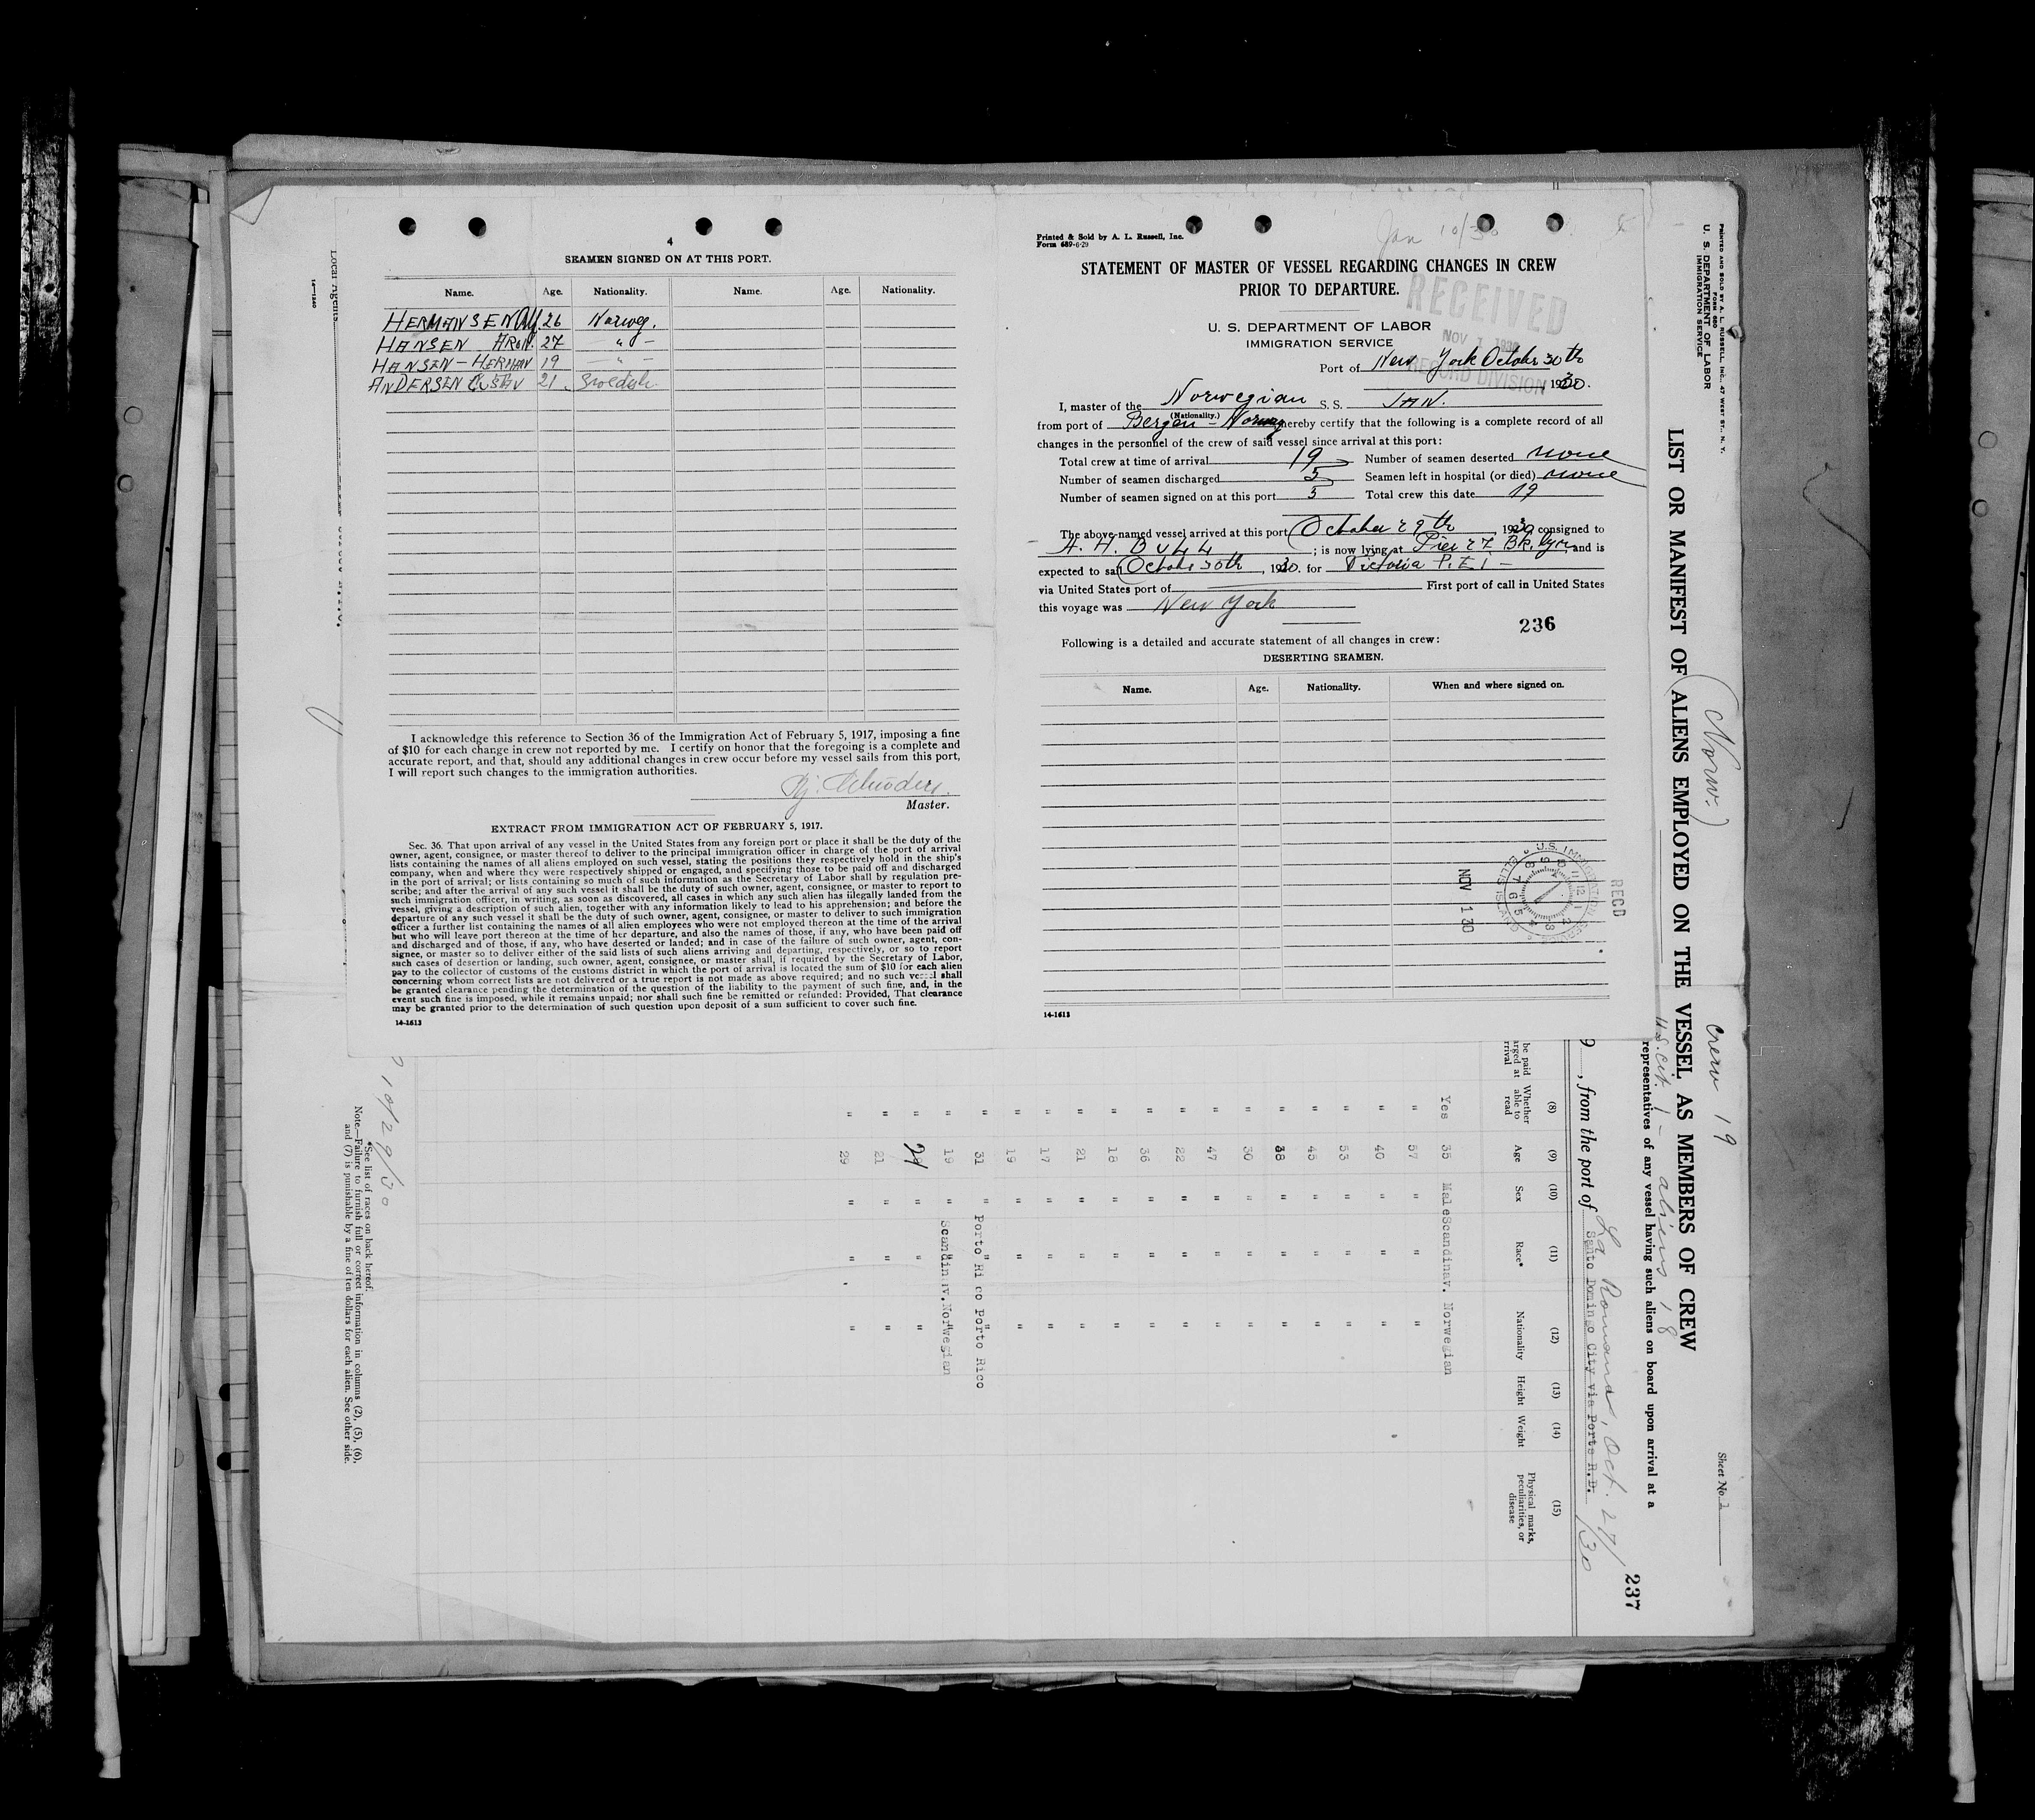 4
SEAMEN SIGNED ON AT THIS PORT.
Name. Age. Nationality. Name. Age. Nationality.
HERMANSEN Alf. 26 Norweg.
HANSEN ARON. 27 — " —
HANSEN - HERMAN 19 — " —
ANDERSEN GUSTAV 21 Swedish
I acknowledge this reference to Section 36 of the Immigration Act of February 5, 1917, imposing a fine
of $10 for each change in crew not reported by me. I certify on honor that the foregoing is a complete and
accurate report, and that, should any additional changes in crew occur before my vessel sails from this port,
I will report such changes to the immigration authorities.
Master.
EXTRACT FROM IMMIGRATION ACT OF FEBRUARY 5, 1917.
Sec. 36. That upon arrival of any vessel in the United States from any foreign port or place it shall be the duty of the
owner, agent, consignee, or master thereof to deliver to the principal immigration officer in charge of the port of arrival
lists containing the names of all aliens employed on such vessel, stating the positions they respectively hold in the ship's
company, when and where they were respectively shipped or engaged, and specifying those to be paid off and discharged
in the port of arrival; or lists containing so much of such information as the Secretary of Labor shall by regulation pre-
scribe; and after the arrival of any such vessel it shall be the duty of such owner, agent, consignee, or master to report to
such immigration officer, in writing, as soon as discovered, all cases in which any such alien has illegally landed from the
vessel, giving a description of such alien, together with any information likely to lead to his apprehension; and before the
departure of any such vessel it shall be the duty of such owner, agent, consignee, or master to deliver to such immigration
officer a further list containing the names of all alien employees who were not employed thereon at the time of the arrival
but who will leave port thereon at the time of her departure, and also the names of those, if any, who have been paid off
and discharged and of those, if any, who have deserted or landed; and in case of the failure of such owner, agent, con-
signee, or master so to deliver either of the said lists of such aliens arriving and departing, respectively, or so to report
such cases of desertion or landing, such owner, agent, consignee, or master shall, if required by the Secretary of Labor,
pay to the collector of customs of the customs district in which the port of arrival is located the sum of $10 for each alien
concerning whom correct lists are not delivered or a true report is not made as above required; and no such vessel shall
be granted clearance pending the determination of the question of the liability to the payment of such fine, and, in the
event such fine is imposed, while it remains unpaid; nor shall such fine be remitted or refunded: Provided, That clearance
may be granted prior to the determination of such question upon deposit of a sum sufficient to cover such fine.
14-1613
Local Agents
14-1240
Printed & Sold by A. L. Russell, Inc.
Form 689-6-29
Jan 10/30
STATEMENT OF MASTER OF VESSEL REGARDING CHANGES IN CREW
PRIOR TO DEPARTURE.
RECEIVED
NOV 1 1930
RECORD DIVISION
U. S. DEPARTMENT OF LABOR
IMMIGRATION SERVICE
Port of New York October 30th
1930.
I, master of the Norwegian S. S. JAN.
(Nationality.)
from port of Bergen - Norway hereby certify that the following is a complete record of all
changes in the personnel of the crew of said vessel since arrival at this port:
Total crew at time of arrival 19 Number of seamen deserted none
Number of seamen discharged 5 Seamen left in hospital (or died) none
Number of seamen signed on at this port 5 Total crew this date 19
The above-named vessel arrived at this port October 29th, 1930, consigned to
A. H. Bull; is now lying at Pier 27 Bk.lyn and is
expected to sail October 30th, 1930. for Victoria P.E.I -
via United States port of First port of call in United States
this voyage was New York
236
Following is a detailed and accurate statement of all changes in crew:
DESERTING SEAMEN.
Name. Age. Nationality. When and where signed on.
RECD
U.S. IMMIGRATION SERVICE
ELLIS ISLAND
NOV 1 30
14-1613
PRINTED AND SOLD BY A. L. RUSSELL, INC., 47 WEST ST., N. Y.
FORM 680
U. S. DEPARTMENT OF LABOR
IMMIGRATION SERVICE
(Norw.) crew 19
Sheet No. 1
LIST OR MANIFEST OF ALIENS EMPLOYED ON THE VESSEL AS MEMBERS OF CREW
U.S. cit. 1 - aliens 18
representatives of any vessel having such aliens on board upon arrival at a
237
La Romana, Oct. 27/30
9, from the port of Santo Domingo City via Ports R.D.
(8) (9) (10) (11) (12) (13) (14) (15)
be paid
arged at
rrival
Whether able to read Age Sex Race* Nationality Height Weight Physical marks, peculiarities, or disease
Yes 35 Male Scandinav. Norwegian
" 57 " " "
" 40 " " "
" 53 " " "
" 45 " " "
" 38 " " "
" 30 " " "
" 47 " " "
" 22 " " "
" 36 " " "
" 18 " " "
" 21 " " "
" 17 " " "
" 19 " " "
" 31 " Porto Rico Porto Rico
" 19 " Scandinav. Norwegian
" 24 " " "
" 21 " " "
" 29 " " "
10/29/30
*See list of races on back hereof.
Note.—Failure to furnish full or correct information in columns (2), (5), (6),
and (7) is punishable by a fine of ten dollars for each alien. See other side.